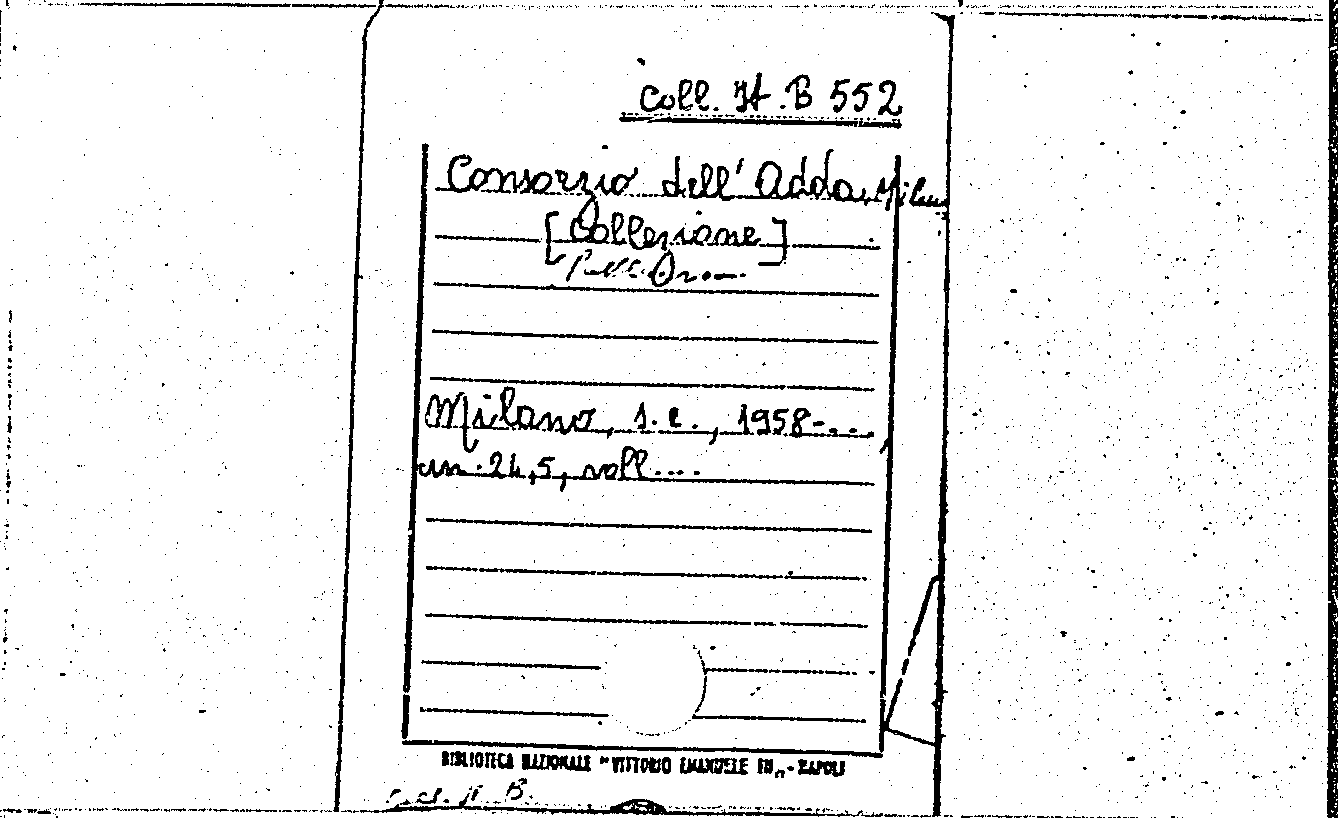 Coll. It. B 552
Consorzio dell'Adda, Milano
[Collezione]
Milano, s.e., 1958-...,
cm. 24,5, voll....
BIBLIOTECA NAZIONALE "VITTORIO EMANUELE III" - NAPOLI